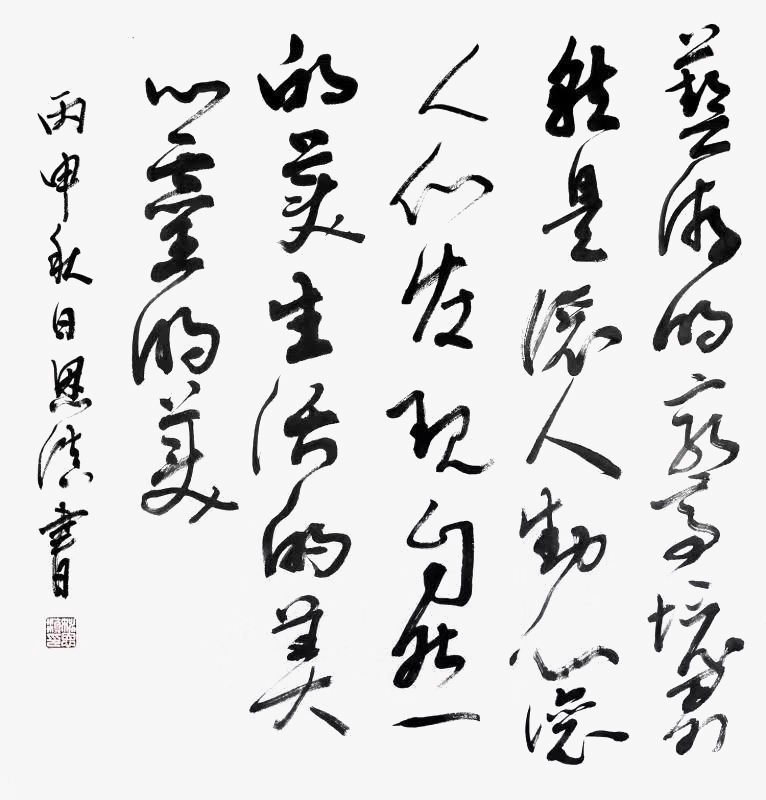 藝術的最高境界
就是讓人動心讓
人们发现自然一
的美生活的美
心靈的美
丙申秋日恩書